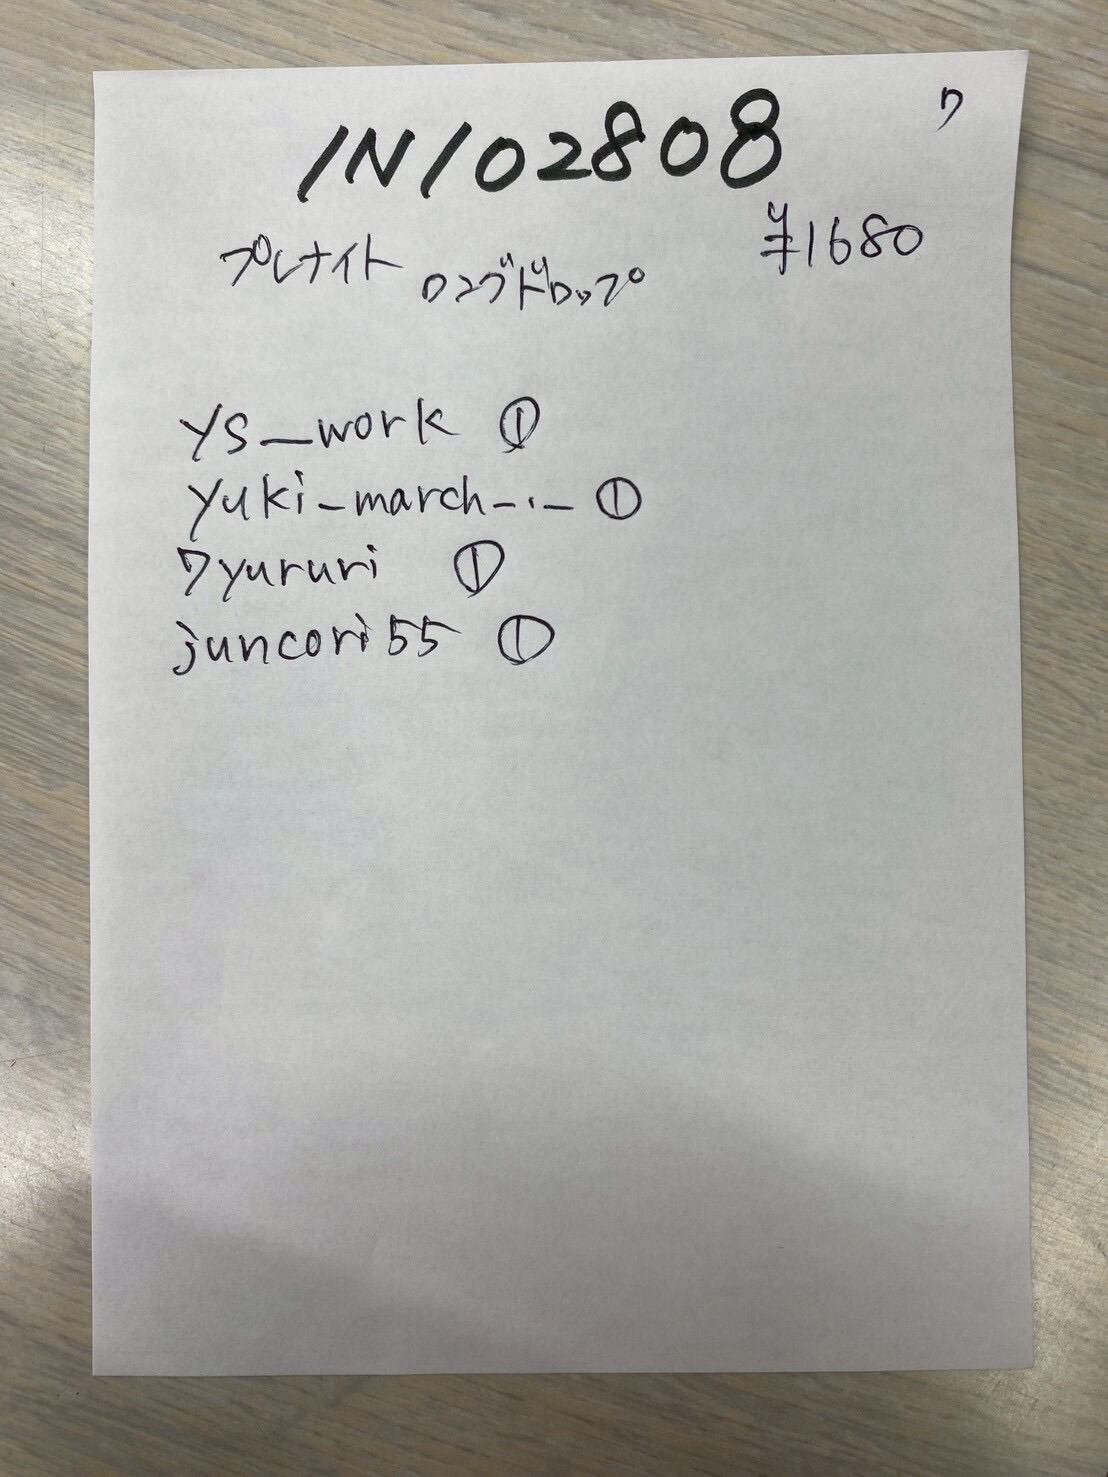 ワ
IN102808
¥1680
プレナイト ロングドロップ
ys_work ①
yuki_march_._ ①
7yururi ①
juncori55 ①